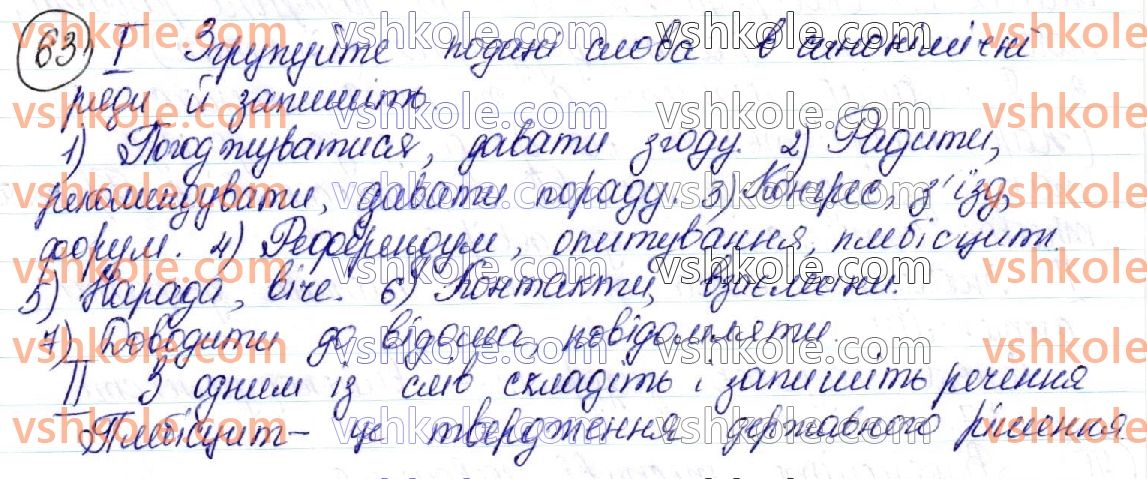 63) I Згрупуйте подані слова в синонімічні
ряди й запишіть.
1) Погоджуватися, давати згоду. 2) Радити,
рекомендувати, давати пораду. 3) Конгрес, з'їзд,
форум. 4) Референдум, опитування, плебісцит.
5) Нарада, віче. 6) Контакти, взаємини.
7) Доводити до відома, повідомляти.
II З одним із слів складіть і запишіть речення
Плебісцит – це твердження державного рішення.